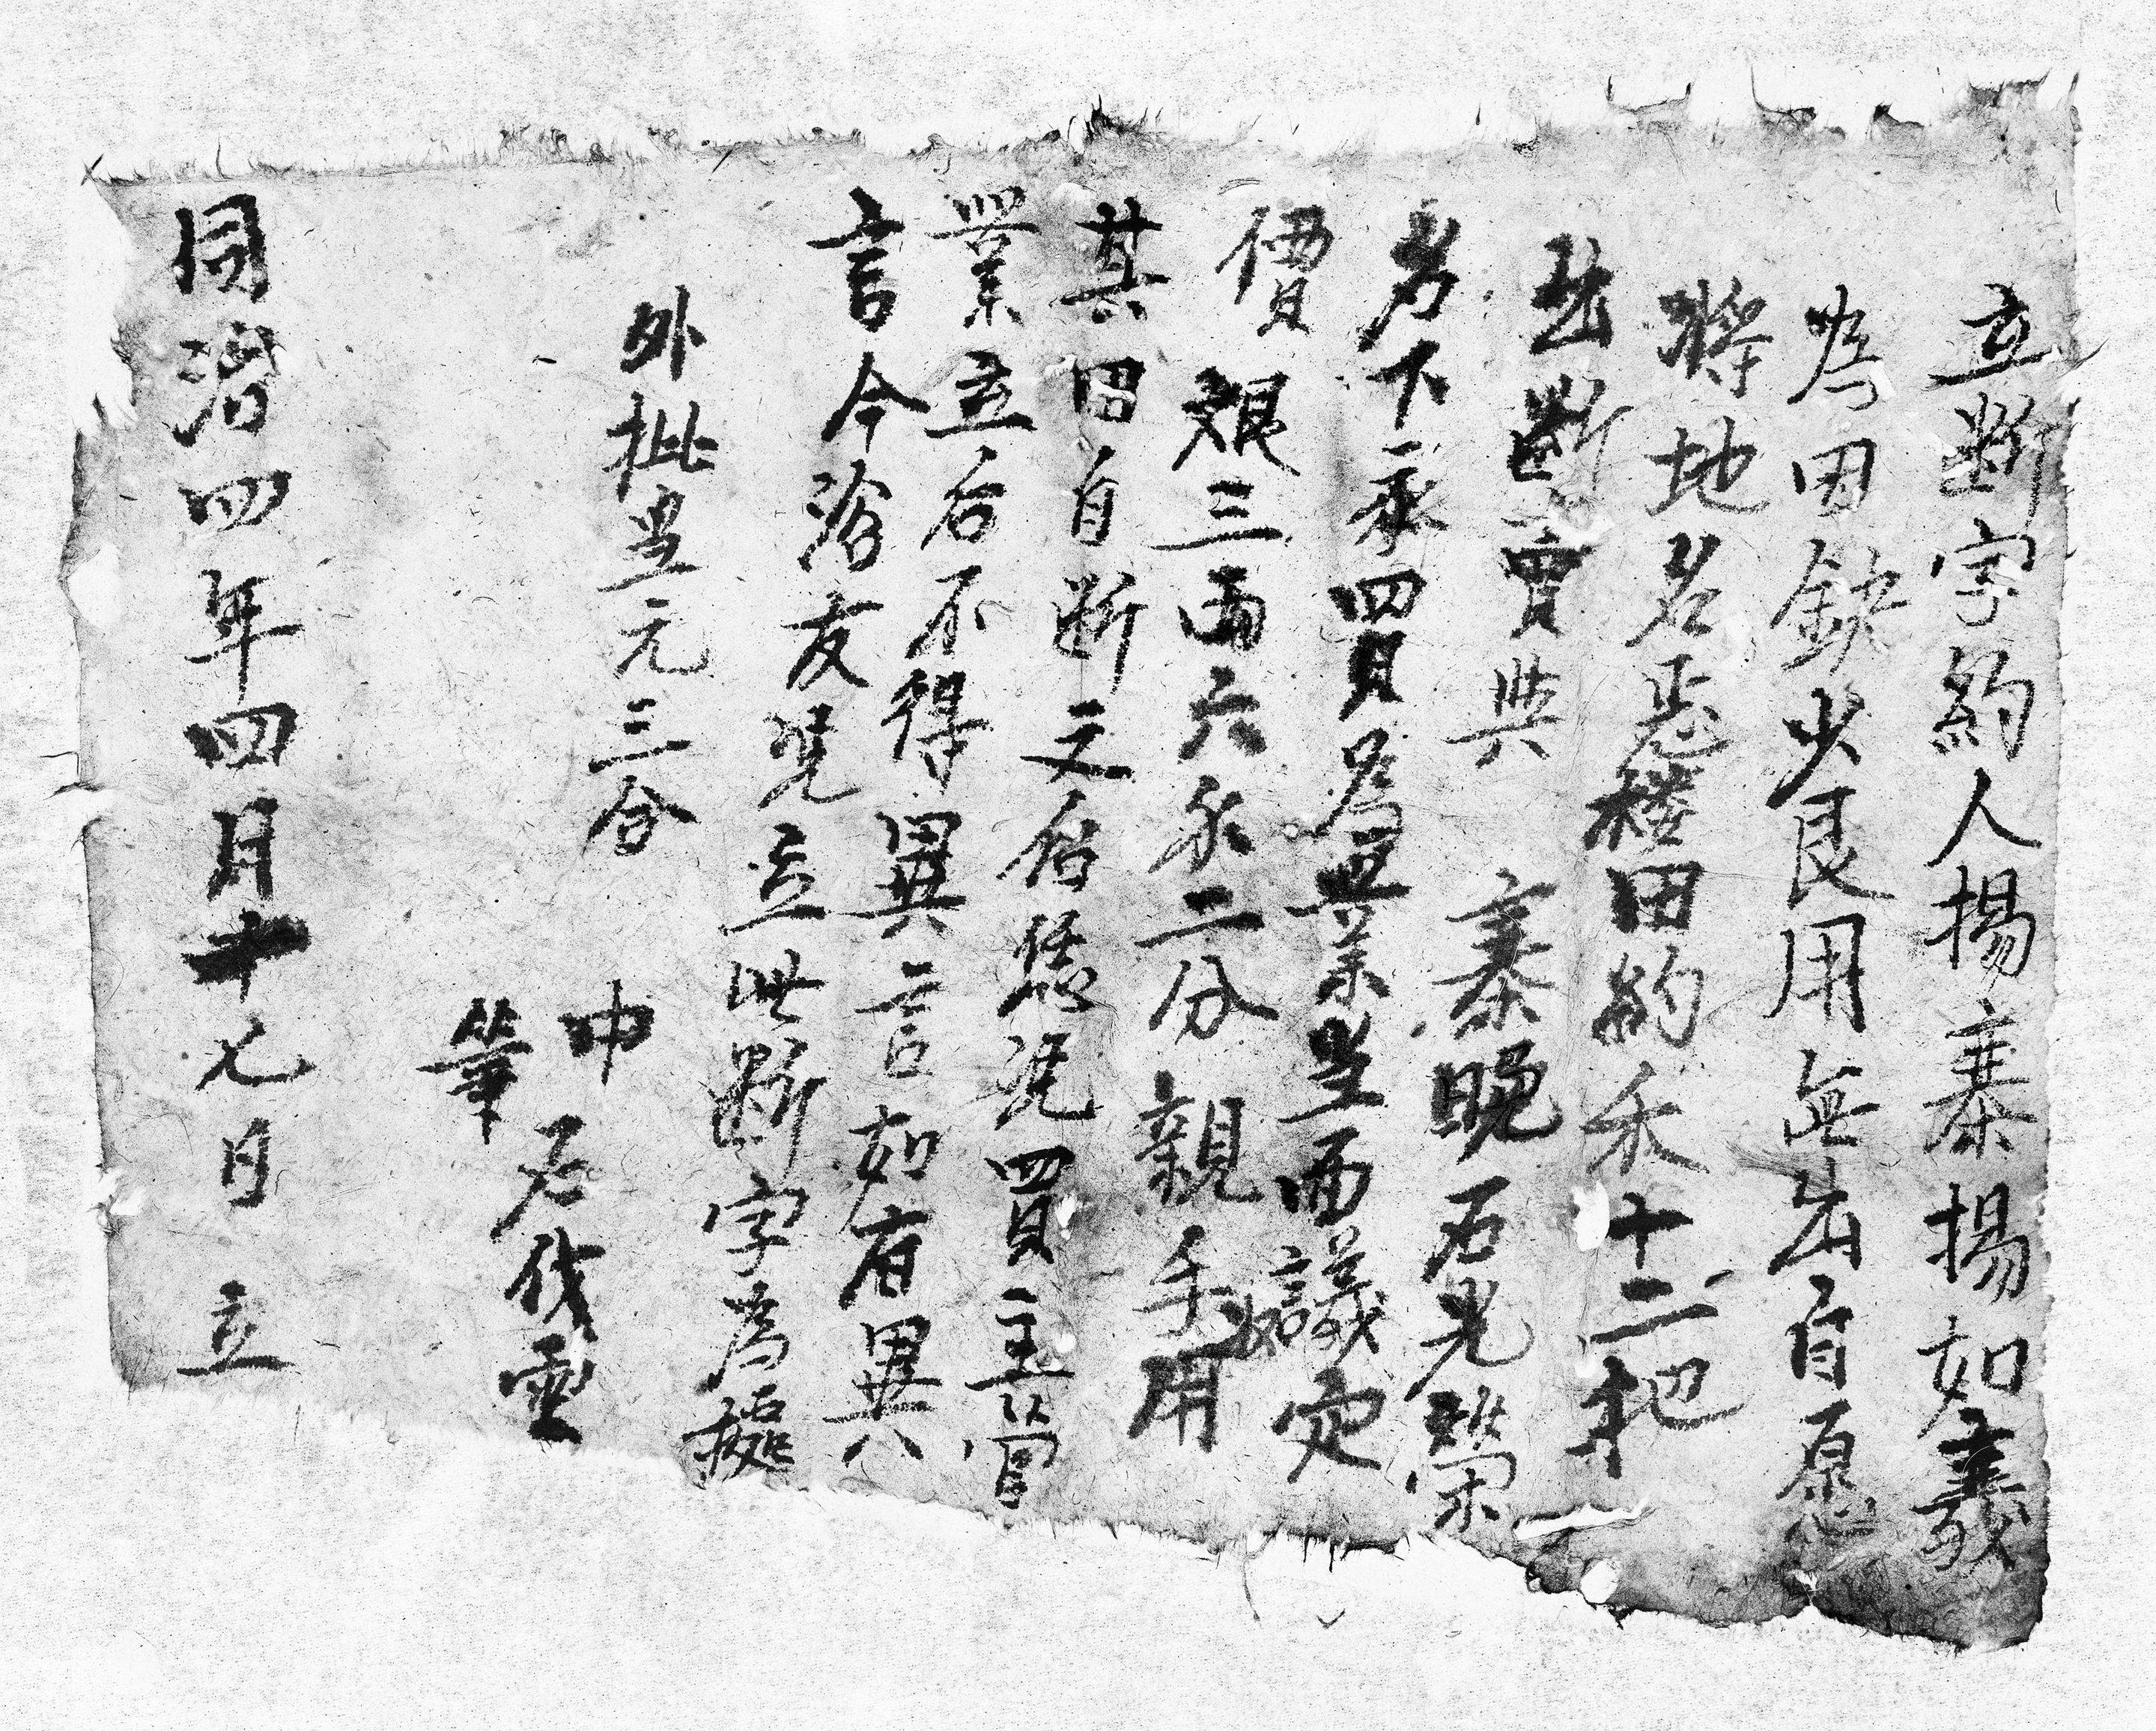 立斷字約人揚寨揚如義
為田缺少艮用無出自愿
將地名惡樓田約禾十二把
出斷賣與 寨晚石光榮
名下承買為業當面議定
價艰三両六分二分親手用
其田自斷之后憑凴買主管
業立后不得異言如有異
言今洛友凴立此斷字為據
外批昱元三分
中
筆 石伐雲
同治四年四月十七日 立